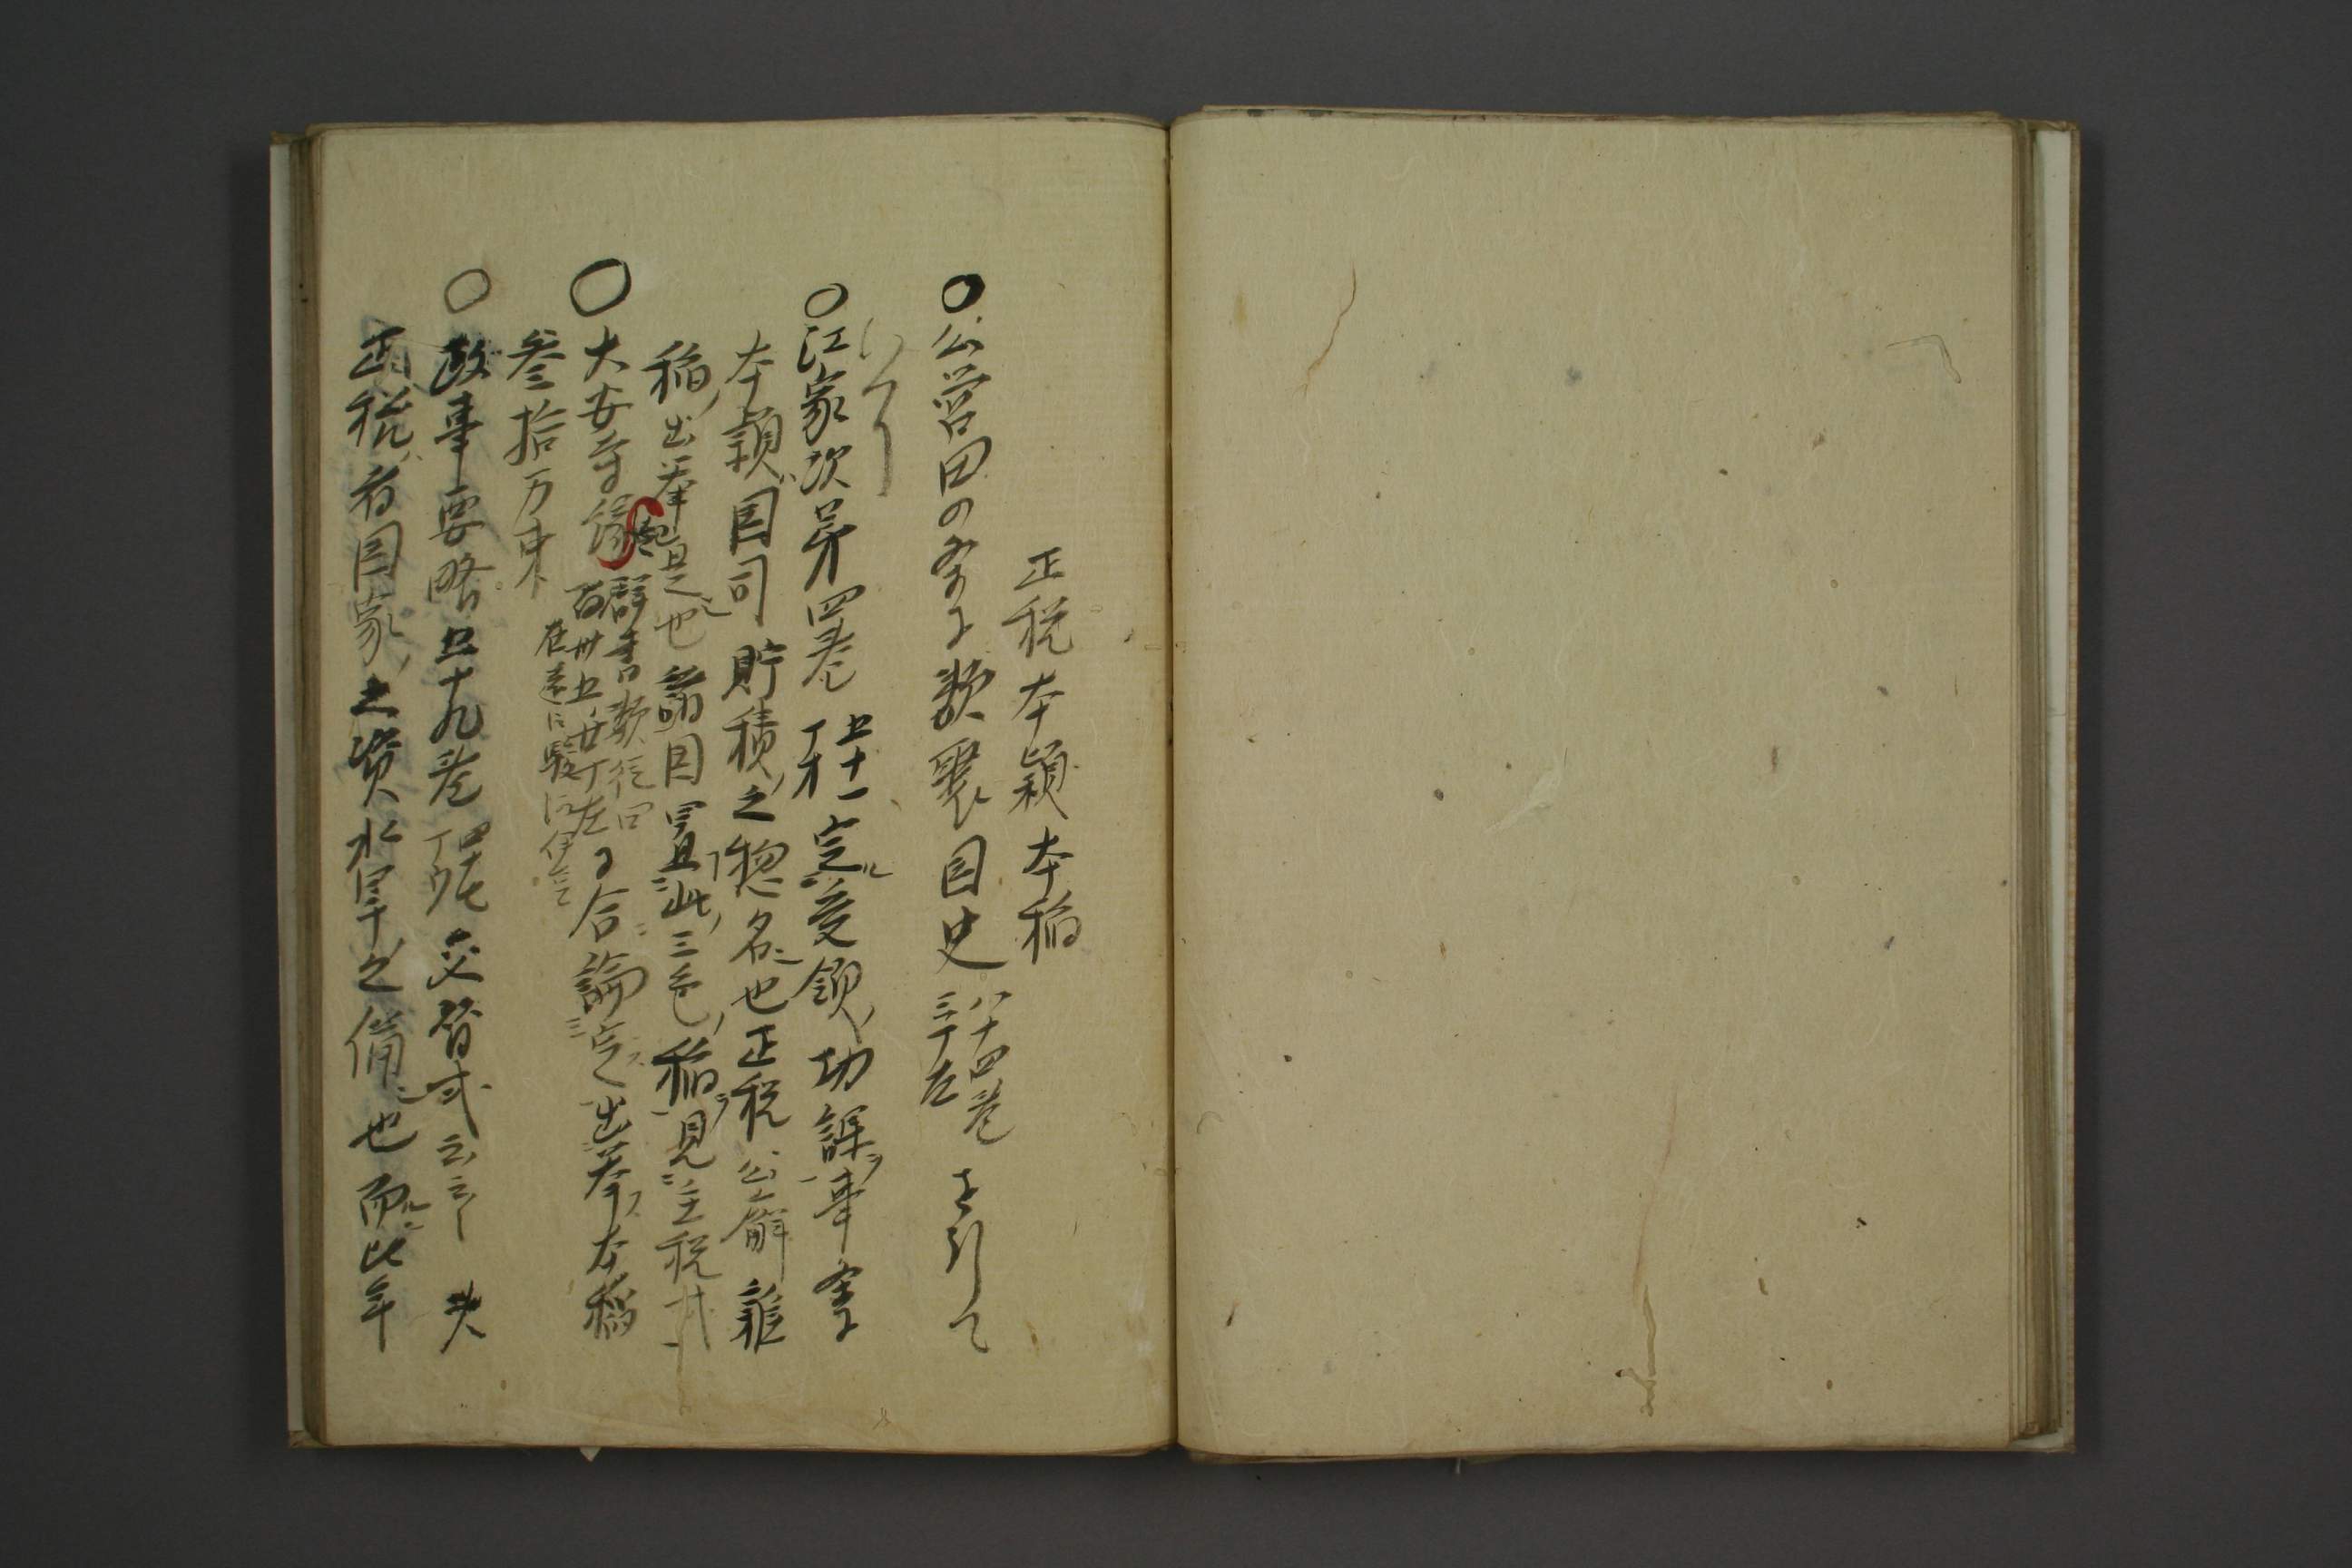 正税本穎本稲
○公営田の条に類聚国史八十四巻三十左を引て
いへり
○江家次第四巻五十一丁オ定受領功課事条
本穎国司貯積之惣名也正税公廨雑
稲出挙是也諸国置此三色稲見主税式
○大安寺縁起群書類従四百卅五廿丁左に合論定出挙本稲
在遠江駿河伊豆
参拾万束
○政事要略五十九巻丁ウ交替式云云夫
正税者国家之資水旱之備也而比年